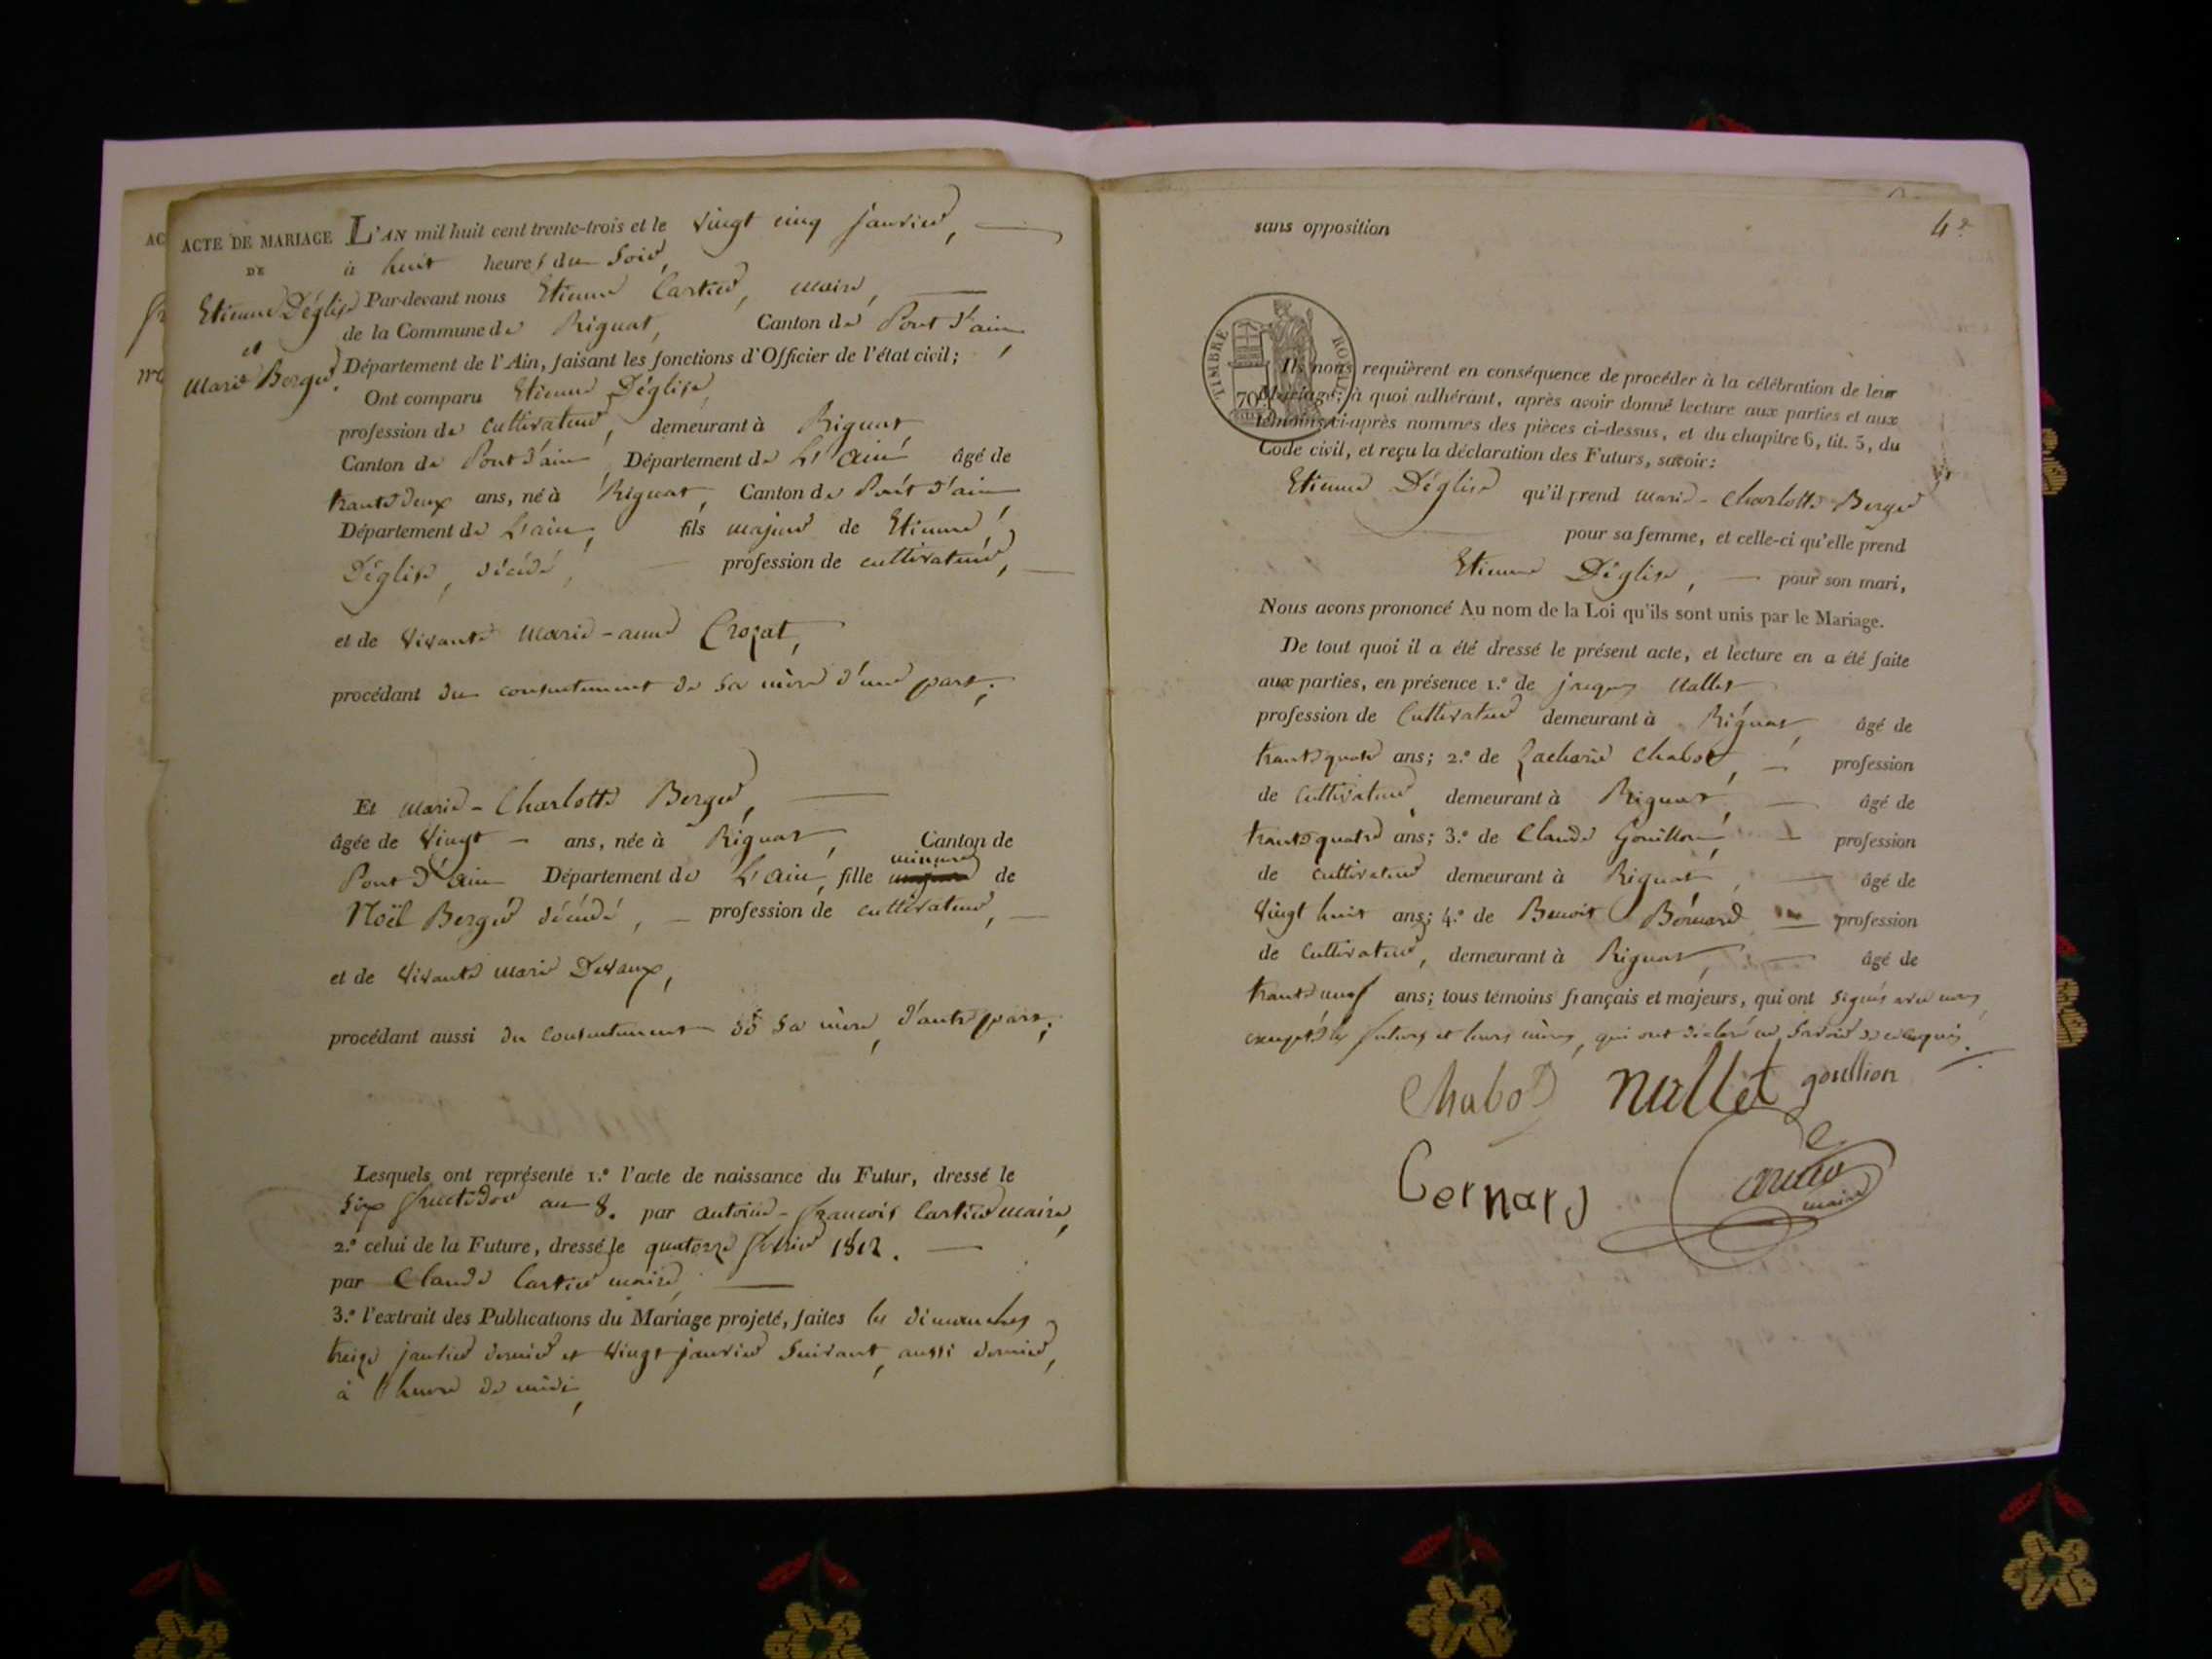 AC
ACTE DE MARIAGE
DE
Etienne Déglise
et
Marie Berger.
L'AN mil huit cent trente-trois et le vingt cinq janvier,
à huit heures du soir,
Par-devant nous Etienne Cartier, maire,
de la Commune de Rignat, Canton de Pont d'ain,
Département de l'Ain, faisant les fonctions d'Officier de l'état civil;
Ont comparu Etienne Déglise,
profession de cultivateur, demeurant à Rignat,
Canton de Pont d'ain Département de L'ain âgé de
trente deux ans, né à Rignat, Canton de Pont d'ain
Département de L'ain, fils majeur de Etienne
Déglise, décédé, profession de cultivateur,
et de vivante Marie-anne Crozat,
procédant du consentement de sa mère d'une part;
Et Marie-Charlotte Berger,
âgée de vingt ans, née à Rignat, Canton de
Pont d'ain Département de L'ain, fille mineure de
Noël Berger décédé, profession de cultivateur,
et de vivante Marie Devaux,
procédant aussi du consentement de sa mère, d'autre part;
Lesquels ont représenté 1.° l'acte de naissance du Futur, dressé le
six fructidor an 8. par antoine-françois Cartier maire,
2.° celui de la Future, dressé le quatorze février 1812.
par Claude Cartier maire,
3.° l'extrait des Publications du Mariage projeté, faites les dimanches
treize janvier dernier et vingt janvier suivant, aussi dernier,
à l'heure de midi,
sans opposition
4e
TIMBRE ROYAL
70
Ils nous requièrent en conséquence de procéder à la célébration de leur
Mariage; à quoi adhérant, après avoir donné lecture aux parties et aux
témoins ci-après nommés des pièces ci-dessus, et du chapitre 6, tit. 5, du
Code civil, et reçu la déclaration des Futurs, savoir:
Etienne Déglise qu'il prend Marie-Charlotte Berger
pour sa femme, et celle-ci qu'elle prend
Etienne Déglise, pour son mari,
Nous avons prononcé Au nom de la Loi qu'ils sont unis par le Mariage.
De tout quoi il a été dressé le présent acte, et lecture en a été faite
aux parties, en présence 1.° de jacques Nallet
profession de Cultivateur demeurant à Rignat, âgé de
trente quatre ans; 2.° de Zacharie Chabot, profession
de Cultivateur, demeurant à Rignat, âgé de
trente quatre ans; 3.° de Claude Gouillon, profession
de cultivateur demeurant à Rignat, âgé de
vingt huit ans; 4.° de Benoit Bernard profession
de Cultivateur, demeurant à Rignat, âgé de
trente neuf ans; tous témoins français et majeurs, qui ont signés avec nous,
exceptés les futurs et leurs mères, qui ont déclaré ne savoir de ce enquis.
Chabot nallet goullion
Bernard
Cartier
maire